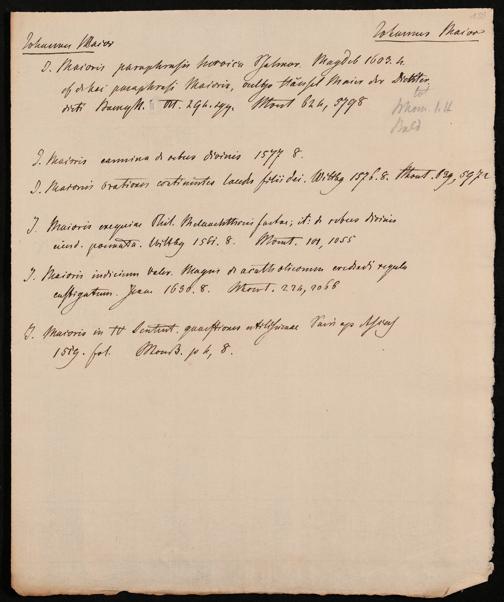 Johannes Maior
Johannes Maior
J. Maioris paraphrasis heroica Psalmor. Magdeb 1603. 4.
paraphrasi Maioris, Hänsel Maier der Dichter
III. 294. sqq. Mont 624, 5798
J. Maioris carmina de rebus divinis 1577 8.
J. Maioris orationes continentes laudes filii dei. Wittbg 1576. 8. Mont. 839, 5972
J. Maioris exequiae Phil. Melanchthonis factae; it: de rebus divinis
eiusd. poemata. Wittbg 1561. 8. Mont. 101, 1055
J. Maioris iudicium Valer. Magni de acatholicorum credendi regula
castigatum. Jenae 1630. 8. Mont. 224, 2068
J. Maioris in IV Sentent. quaestiones utilissimae Paris ap
1519. fol. p 4, 8.